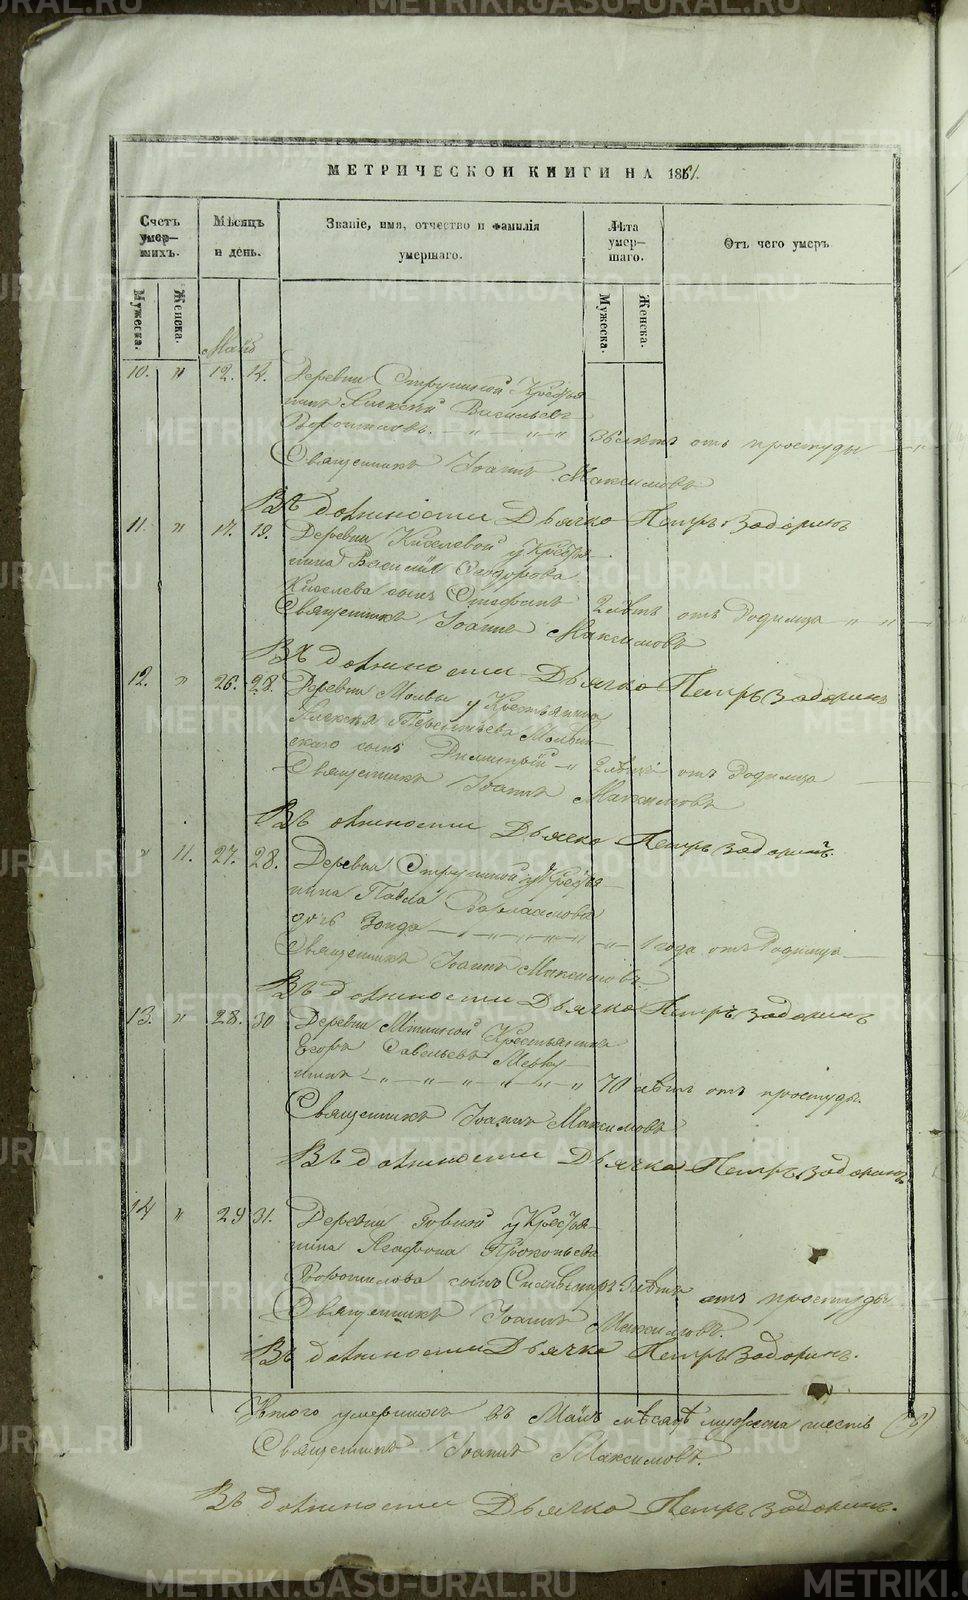 МЕТРИЧЕСКОЙ КНИГИ НА 1861.
Счетъ умер-шихъ.
Мѣсяцъ и день.
Званіе, имя, отчество и фамилія умершаго.
Лѣта умер-шаго.
Отъ чего умеръ
Мужеска.
Женска.
Мужеска.
Женска.
Май
10. " 12. 14. Деревни Крестья-
нинъ Алексѣй Васильевъ
" " 36 лѣтъ отъ простуды
Священникъ Іоаннъ Максимовъ
Въ должности Дьячка Петръ Задоринъ
11. " 17. 19. Деревни Киселевой у Крестья-
нина Василія Ѳеодорова
Киселева сынъ Стефанъ 2 лѣтъ отъ Родимца " "
Священникъ Іоаннъ Максимовъ
Въ должности Дьячка Петръ Задоринъ
12. " 26. 28. Деревни у Крестьянина
Алексія
сынъ Димитрій " 2 лѣтъ отъ Родимца
Священникъ Іоаннъ Максимовъ
Въ должности Дьячка Петръ Задоринъ.
" 11. 27. 28. Деревни у Крестья-
нина Павла Варлаамова
дочь " " " " 1 года отъ Родимца
Священникъ Іоаннъ Максимовъ.
Въ должности Дьячка Петръ Задоринъ
13. " 28. 30 Деревни Крестьянинъ
Егоръ Савельевъ
" " " " " 70 лѣтъ отъ простуды.
Священникъ Іоаннъ Максимовъ
Въ должности Дьячка Петръ Задоринъ.
14 " 29 31. Деревни у Крестья-
нина Агафона Прокопьева
сынъ отъ простуды
Священникъ Іоаннъ Максимовъ.
Въ должности Дьячка Петръ Задоринъ.
Итого умершихъ въ Маѣ мѣсяцѣ мужеска шесть
Священникъ Іоаннъ Максимовъ.
Въ должности Дьячка Петръ Задоринъ.
METRIKI.GASO-URAL.RU